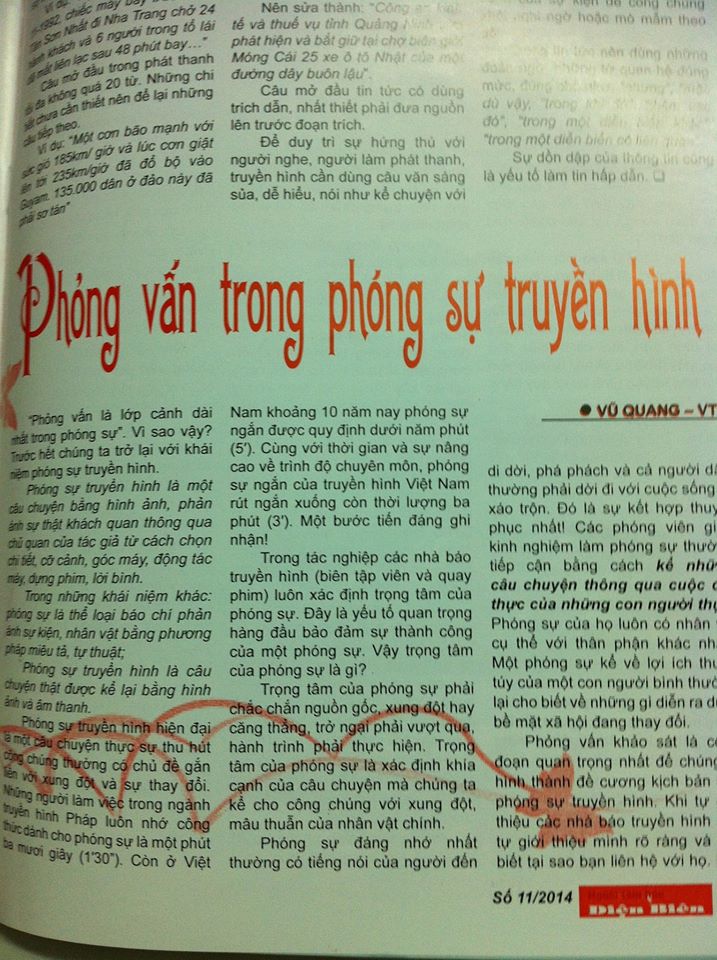 Ví dụ:
11-1992, chiếc máy bay
Tân Sơn Nhất đi Nha Trang chở 24
hành khách và 6 người trong tổ lái
đã mất liên lạc sau 48 phút bay…"
Câu mở đầu trong phát thanh
tối đa không quá 20 từ. Những chi
tiết chưa cần thiết nên để lại những
câu tiếp theo.
Ví dụ: "Một cơn bão mạnh với
sức gió 185km/ giờ và lúc cơn giật
lên tới 235km/giờ đã đổ bộ vào
Guyam. 135.000 dân ở đảo này đã
phải sơ tán"
Nên sửa thành: "Công an kinh
tế và thuế vụ tỉnh Quảng Ninh
phát hiện và bắt giữ tại chợ biên giới
Móng Cái 25 xe ô tô Nhật của một
đường dây buôn lậu".
Câu mở đầu tin tức có dùng
trích dẫn, nhất thiết phải đưa nguồn
lên trước đoạn trích.
Để duy trì sự hứng thú với
người nghe, người làm phát thanh,
truyền hình cần dùng câu văn sáng
sủa, dễ hiểu, nói như kể chuyện với
sự kiện để công chúng
nghi ngờ hoặc mò mẫm theo
tin tức nên dùng những
từ quan hệ đúng
mức,
dù vậy, "trong khi đó",
đó", "trong một diễn biến khác"
"trong một diễn biến có liên quan"
Sự dồn dập của thông tin cũng
là yếu tố làm tin hấp dẫn. ❏
Phỏng vấn trong phóng sự truyền hình
"Phỏng vấn là lớp cảnh dài
nhất trong phóng sự". Vì sao vậy?
Trước hết chúng ta trở lại với khái
niệm phóng sự truyền hình.
Phóng sự truyền hình là một
câu chuyện bằng hình ảnh, phản
ánh sự thật khách quan thông qua
chủ quan của tác giả từ cách chọn
chi tiết, cỡ cảnh, góc máy, động tác
máy, dựng phim, lời bình.
Trong những khái niệm khác:
phóng sự là thể loại báo chí phản
ánh sự kiện, nhân vật bằng phương
pháp miêu tả, tự thuật;
Phóng sự truyền hình là câu
chuyện thật được kể lại bằng hình
ảnh và âm thanh.
Phóng sự truyền hình hiện đại
là một câu chuyện thực sự thu hút
công chúng thường có chủ đề gắn
liền với xung đột và sự thay đổi.
Những người làm việc trong ngành
truyền hình Pháp luôn nhớ công
thức dành cho phóng sự là một phút
ba mươi giây (1'30"). Còn ở Việt
Nam khoảng 10 năm nay phóng sự
ngắn được quy định dưới năm phút
(5'). Cùng với thời gian và sự nâng
cao về trình độ chuyên môn, phóng
sự ngắn của truyền hình Việt Nam
rút ngắn xuống còn thời lượng ba
phút (3'). Một bước tiến đáng ghi
nhận!
Trong tác nghiệp các nhà báo
truyền hình (biên tập viên và quay
phim) luôn xác định trọng tâm của
phóng sự. Đây là yếu tố quan trọng
hàng đầu bảo đảm sự thành công
của một phóng sự. Vậy trọng tâm
của phóng sự là gì?
Trọng tâm của phóng sự phải
chắc chắn nguồn gốc, xung đột hay
căng thẳng, trở ngại phải vượt qua,
hành trình phải thực hiện. Trọng
tâm của phóng sự là xác định khía
cạnh của câu chuyện mà chúng ta
kể cho công chúng với xung đột,
mâu thuẫn của nhân vật chính.
Phóng sự đáng nhớ nhất
thường có tiếng nói của người đến
● VŨ QUANG – VT
di dời, phá phách và cả người dâ
thường phải dời đi với cuộc sống
xáo trộn. Đó là sự kết hợp thuy
phục nhất! Các phóng viên gi
kinh nghiệm làm phóng sự thườ
tiếp cận bằng cách kể nhữ
câu chuyện thông qua cuộc
thực của những con người thự
Phóng sự của họ luôn có nhân
cụ thể với thân phận khác nha
Một phóng sự kể về lợi ích thu
túy của một con người bình thườ
lại cho biết về những gì diễn ra d
bề mặt xã hội đang thay đổi.
Phỏng vấn khảo sát là cô
đoạn quan trọng nhất để chúng
hình thành đề cương kịch bản
phóng sự truyền hình. Khi tự
thiệu các nhà báo truyền hình
tự giới thiệu mình rõ ràng và
biết tại sao bạn liên hệ với họ.
Số 11/2014
Điện Biên